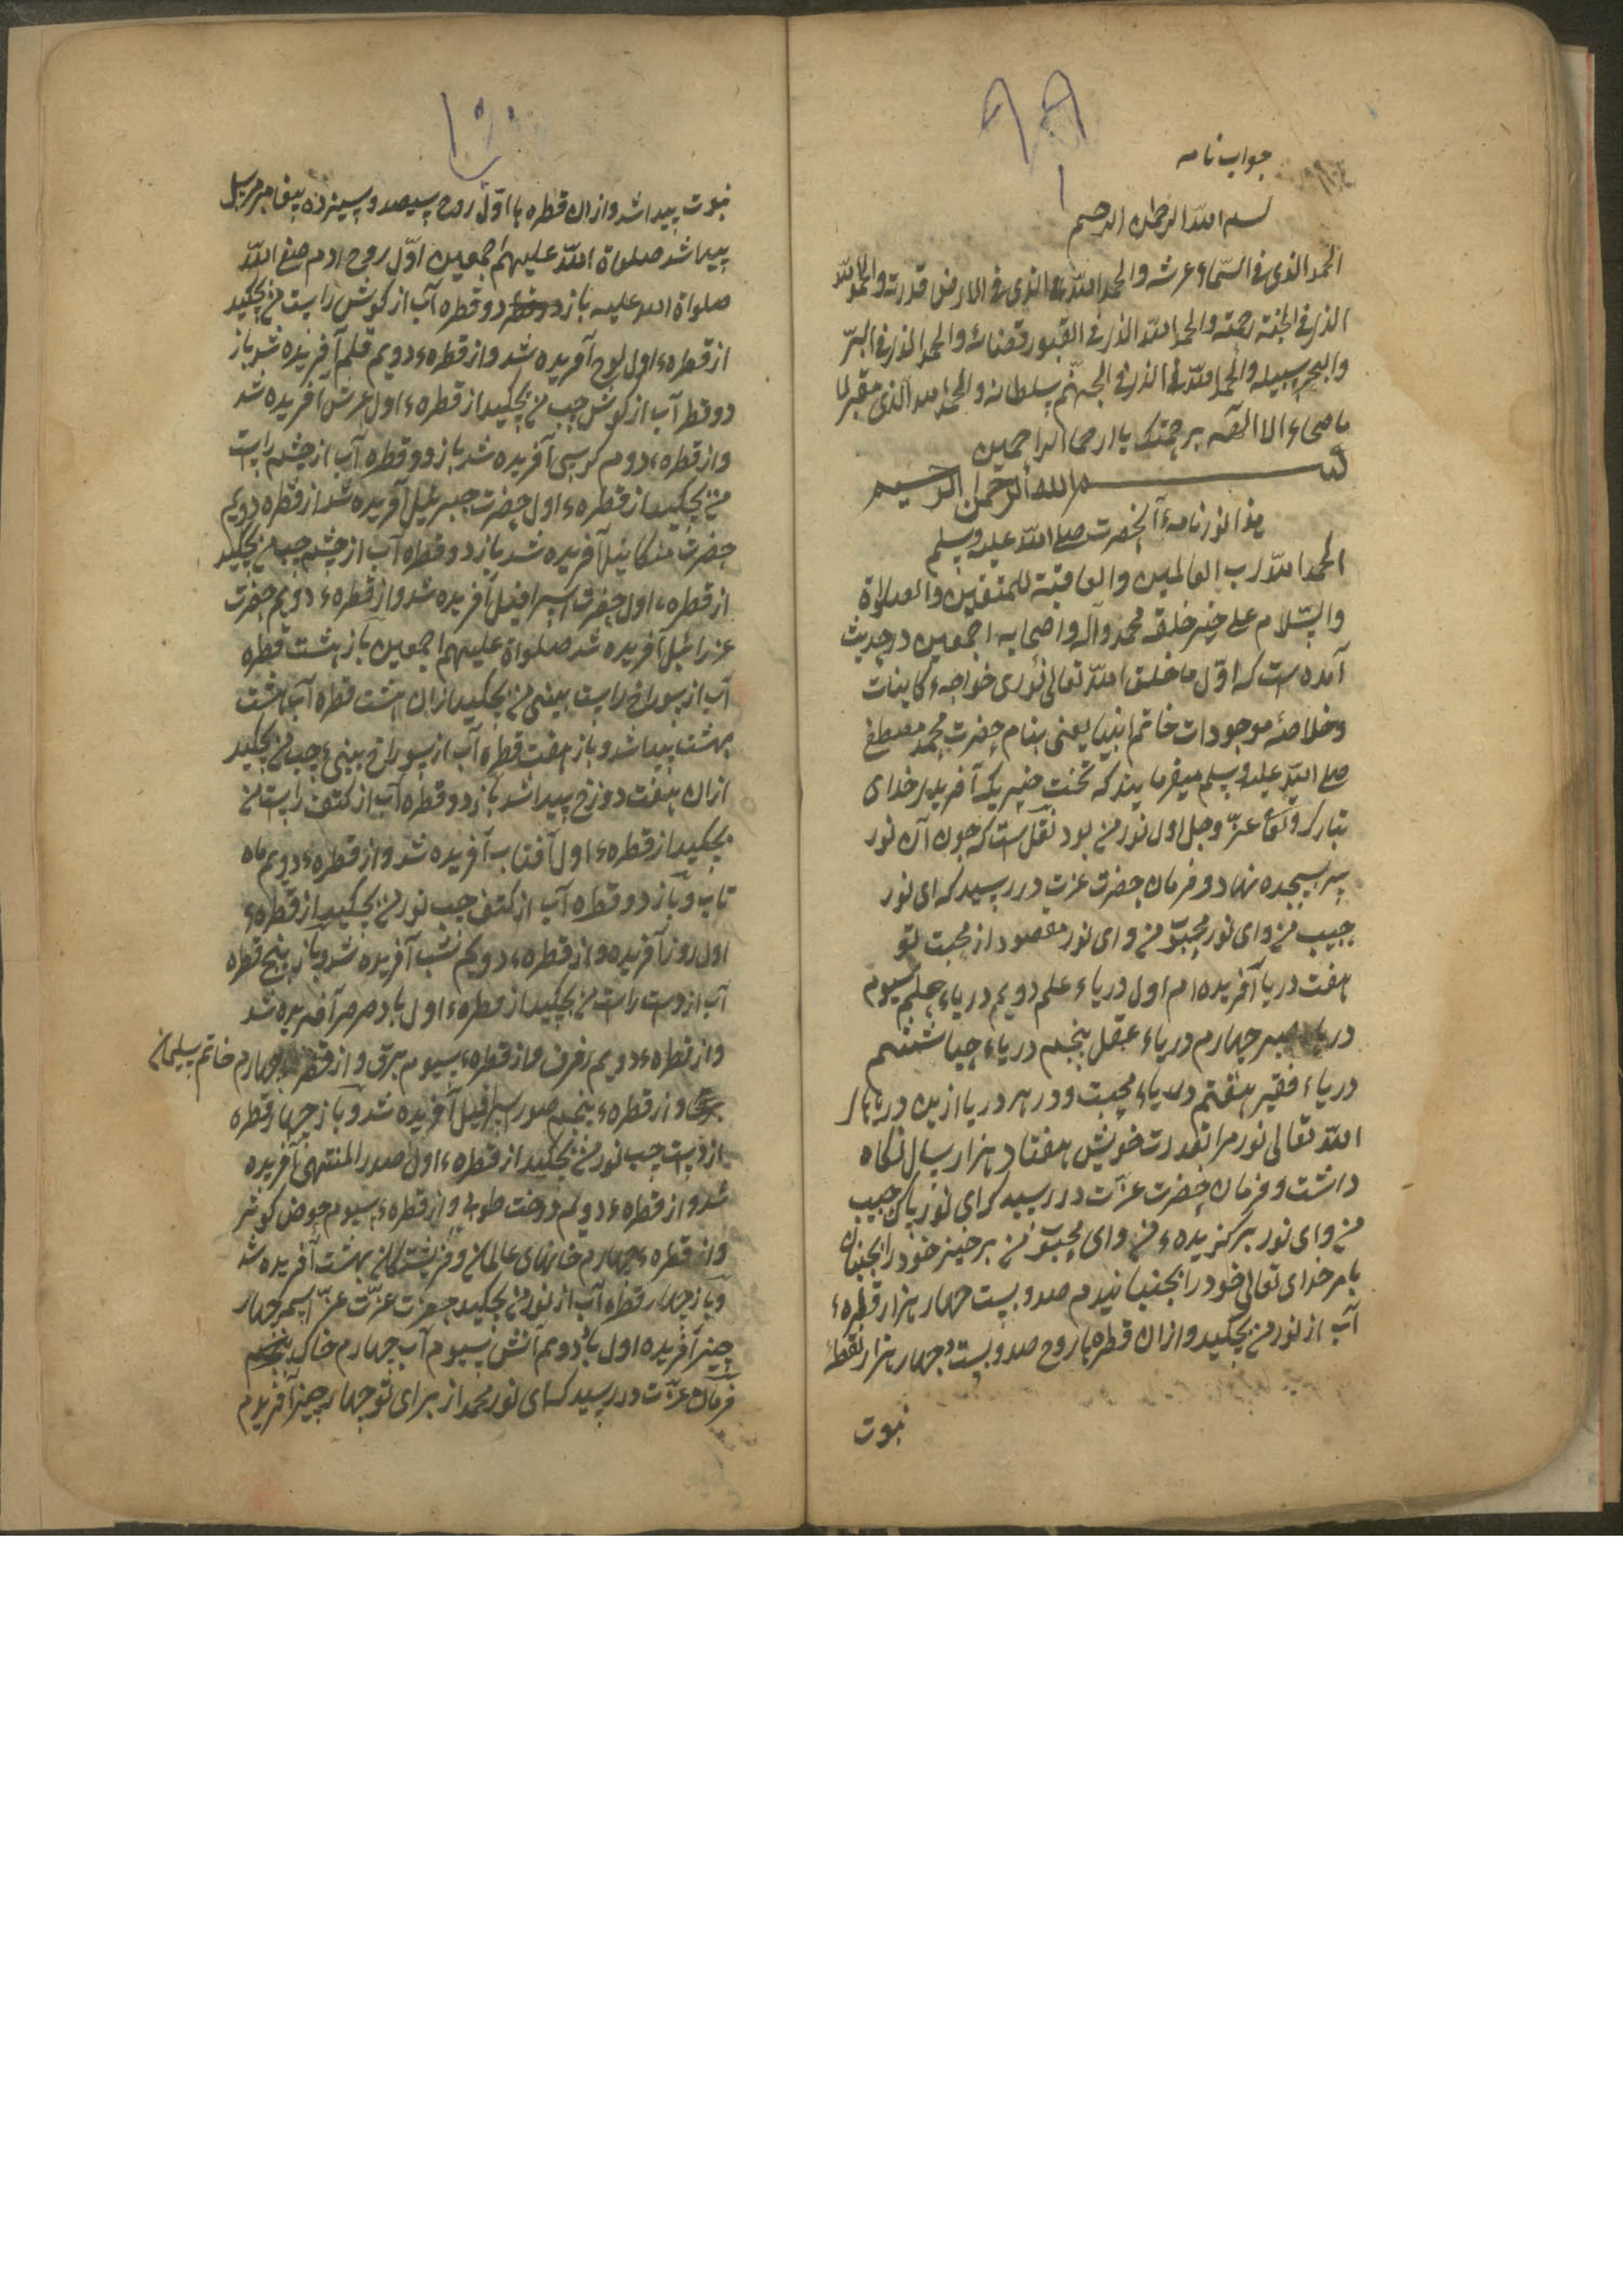 ۹۹
جواب نامه
بسم الله الرحمن الرحیم
الحمد الذی فی السّماء عرشه والحمد الله الذی فی الارض قدرته والحمد الله
الذی فی الجنة رحمته والحمد الله الذی فی القبور قضائه والحمد الذی فی البرّ
والبحر سبیله والحمد الله الذی فی الجهنّم سلطانه والحمد الله الذی
الا الیه برحمتک یا ارحم الراحمین
بسم الله الرحمن الرحیم
هذا نور نامهٔ آنحضرت صلی الله علیه وسلم
الحمد الله رب العالمین والعاقبة للمتقین والصلواة
والسّلام علی خیر خلقه محمد وآله واصحابه اجمعین در حدیث
آمده است که اوّل ما خلق الله تعالی نوری خواجهء کاینات
وخلاصهٔ موجودات خاتم انبیا یعنی بنام حضرت محمد مصطفی
صلی الله علیه وسلم میفرمایند که نخست چیزیکه آفریدار خدای
تبارک وتعا عزّ وجل اول نور من بود نقل است که چون آن نور
سر بسجده نهاد و فرمان حضرت عزت در رسید که ای نور
حبیب من وای نور محبوّ من و ای نور مقصود از محبت تو
هفت دریا آفریده ام اول دریاء علم دویم دریاء حلم سیوم
دریاء صبر چهارم دریاء عقل پنجم دریاء حیا ششم
دریاء فقیر هفتم دریاء محبت و در هر دریا ازین دریاها
الله تعالی نور مرا بقدرت خویش هفتاد هزار سال نگاه
داشت و فرمان حضرت عزّت در رسید که ای نور پاک حبیب
من وای نور برگزیدهء من وای محبوّ من برخیز خود را بجنبان
بامر خدای تعالی خود را بجنبانیدم صد و بیست چهار هزار قطرهء
آب از نور من بچکید و ازان قطره ها روح صد و بیست و چهار هزار نقطهٔ
نبوت
۱۰۰
نبوت پیدا شد و ازان قطره ها اوّل روح سیصد و سیزده پیغامبر مرسل
پیدا شد صلواة الله علیهم اجمعین اوّل روح ادم صفی الله
صلواة الله علیه باز دو قطره آب از گوش راست من بچکید
از قطرهء اول لوح آفریده شد و از قطرهء دویم قلم آفریده شد باز
دو قطر آب از گوش چپ من بچکید از قطرهء اول عرش آفریده شد
و از قطرهء دوم کرسی آفریده شد باز دو قطره آب از چشم راست
من بچکید از قطرهء اول حضرت جبرئیل آفریده شد از قطره دویم
حضرت میکائیل آفریده شد باز دو قطره آب از چشم چپ من بچکید
از قطرهء اول حضرت اسرافیل آفریده شد و از قطرهء دویم حضرت
عزرائیل آفریده شد صلواة علیهم اجمعین باز هشت قطره
آب از سوراخ راست بینی من بچکید ازان هشت قطره آب هشت
بهشت پیدا شد و باز هفت قطره آب از سوراخ بینیء چپ من بچکید
ازان هفت دوزخ پیدا شد باز دو قطره آب از کتف راست من
بچکید از قطرهء اول آفتاب آفریده شد و از قطرهء دویم ماه
تاب و باز دو قطره آب از کتف چپ نور من بچکید از قطرهء
اول روز آفریده و از قطرهء دویم شب آفریده شد و باز پنج قطره
آب از دست راست من بچکید از قطرهء اول باد صرصر آفریده شد
و از قطرهء دویم رفرف و از قطرهء سیوم برق و از قطرهء چهارم خاتم سلیمان
و از قطرهء پنجم صور اسرافیل آفریده شد و باز چهار قطره
از دست چپ نور من بچکید از قطرهء اول صدر المنتهی آفریده
شد و از قطرهء دویم درخت طوبی و از قطرهء سیوم حوض کوثر
و از قطرهء چهارم خانهای عالمان و فریشتگان بهشت آفریده شد
و باز چهار قطره آب از نور من بچکید حضرت عزّت عزّ اسمه چهار
چیز آفریده اول باد دویم آتش سیوم آب چهارم خاک
فرمان عزّت در رسید که ای نور محمد از برای تو چهار چیز آفریدم